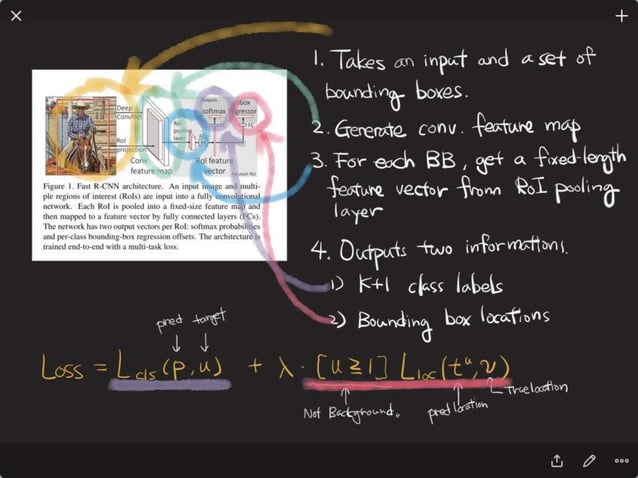 1. Takes an input and a set of
bounding boxes.
2. Generate conv. feature map
3. For each BB, get a fixed-length
feature vector from RoI pooling
layer
4. Outputs two informations.
1) K+1 class labels
2) Bounding box locations
Deep
ConvNet
RoI
projection
Conv
feature map
RoI
pooling
layer
FCs
RoI feature
vector
Outputs:
softmax
bbox
regressor
FC
For each RoI
Figure 1. Fast R-CNN architecture. An input image and multi-
ple regions of interest (RoIs) are input into a fully convolutional
network. Each RoI is pooled into a fixed-size feature map and
then mapped to a feature vector by fully connected layers (FCs).
The network has two output vectors per RoI: softmax probabilities
and per-class bounding-box regression offsets. The architecture is
trained end-to-end with a multi-task loss.
pred target
↓ ↓
Loss = Lcls (p, u) + λ · [u ≧ 1] Lloc (tᵘ, v)
Not Background.
pred location
True location